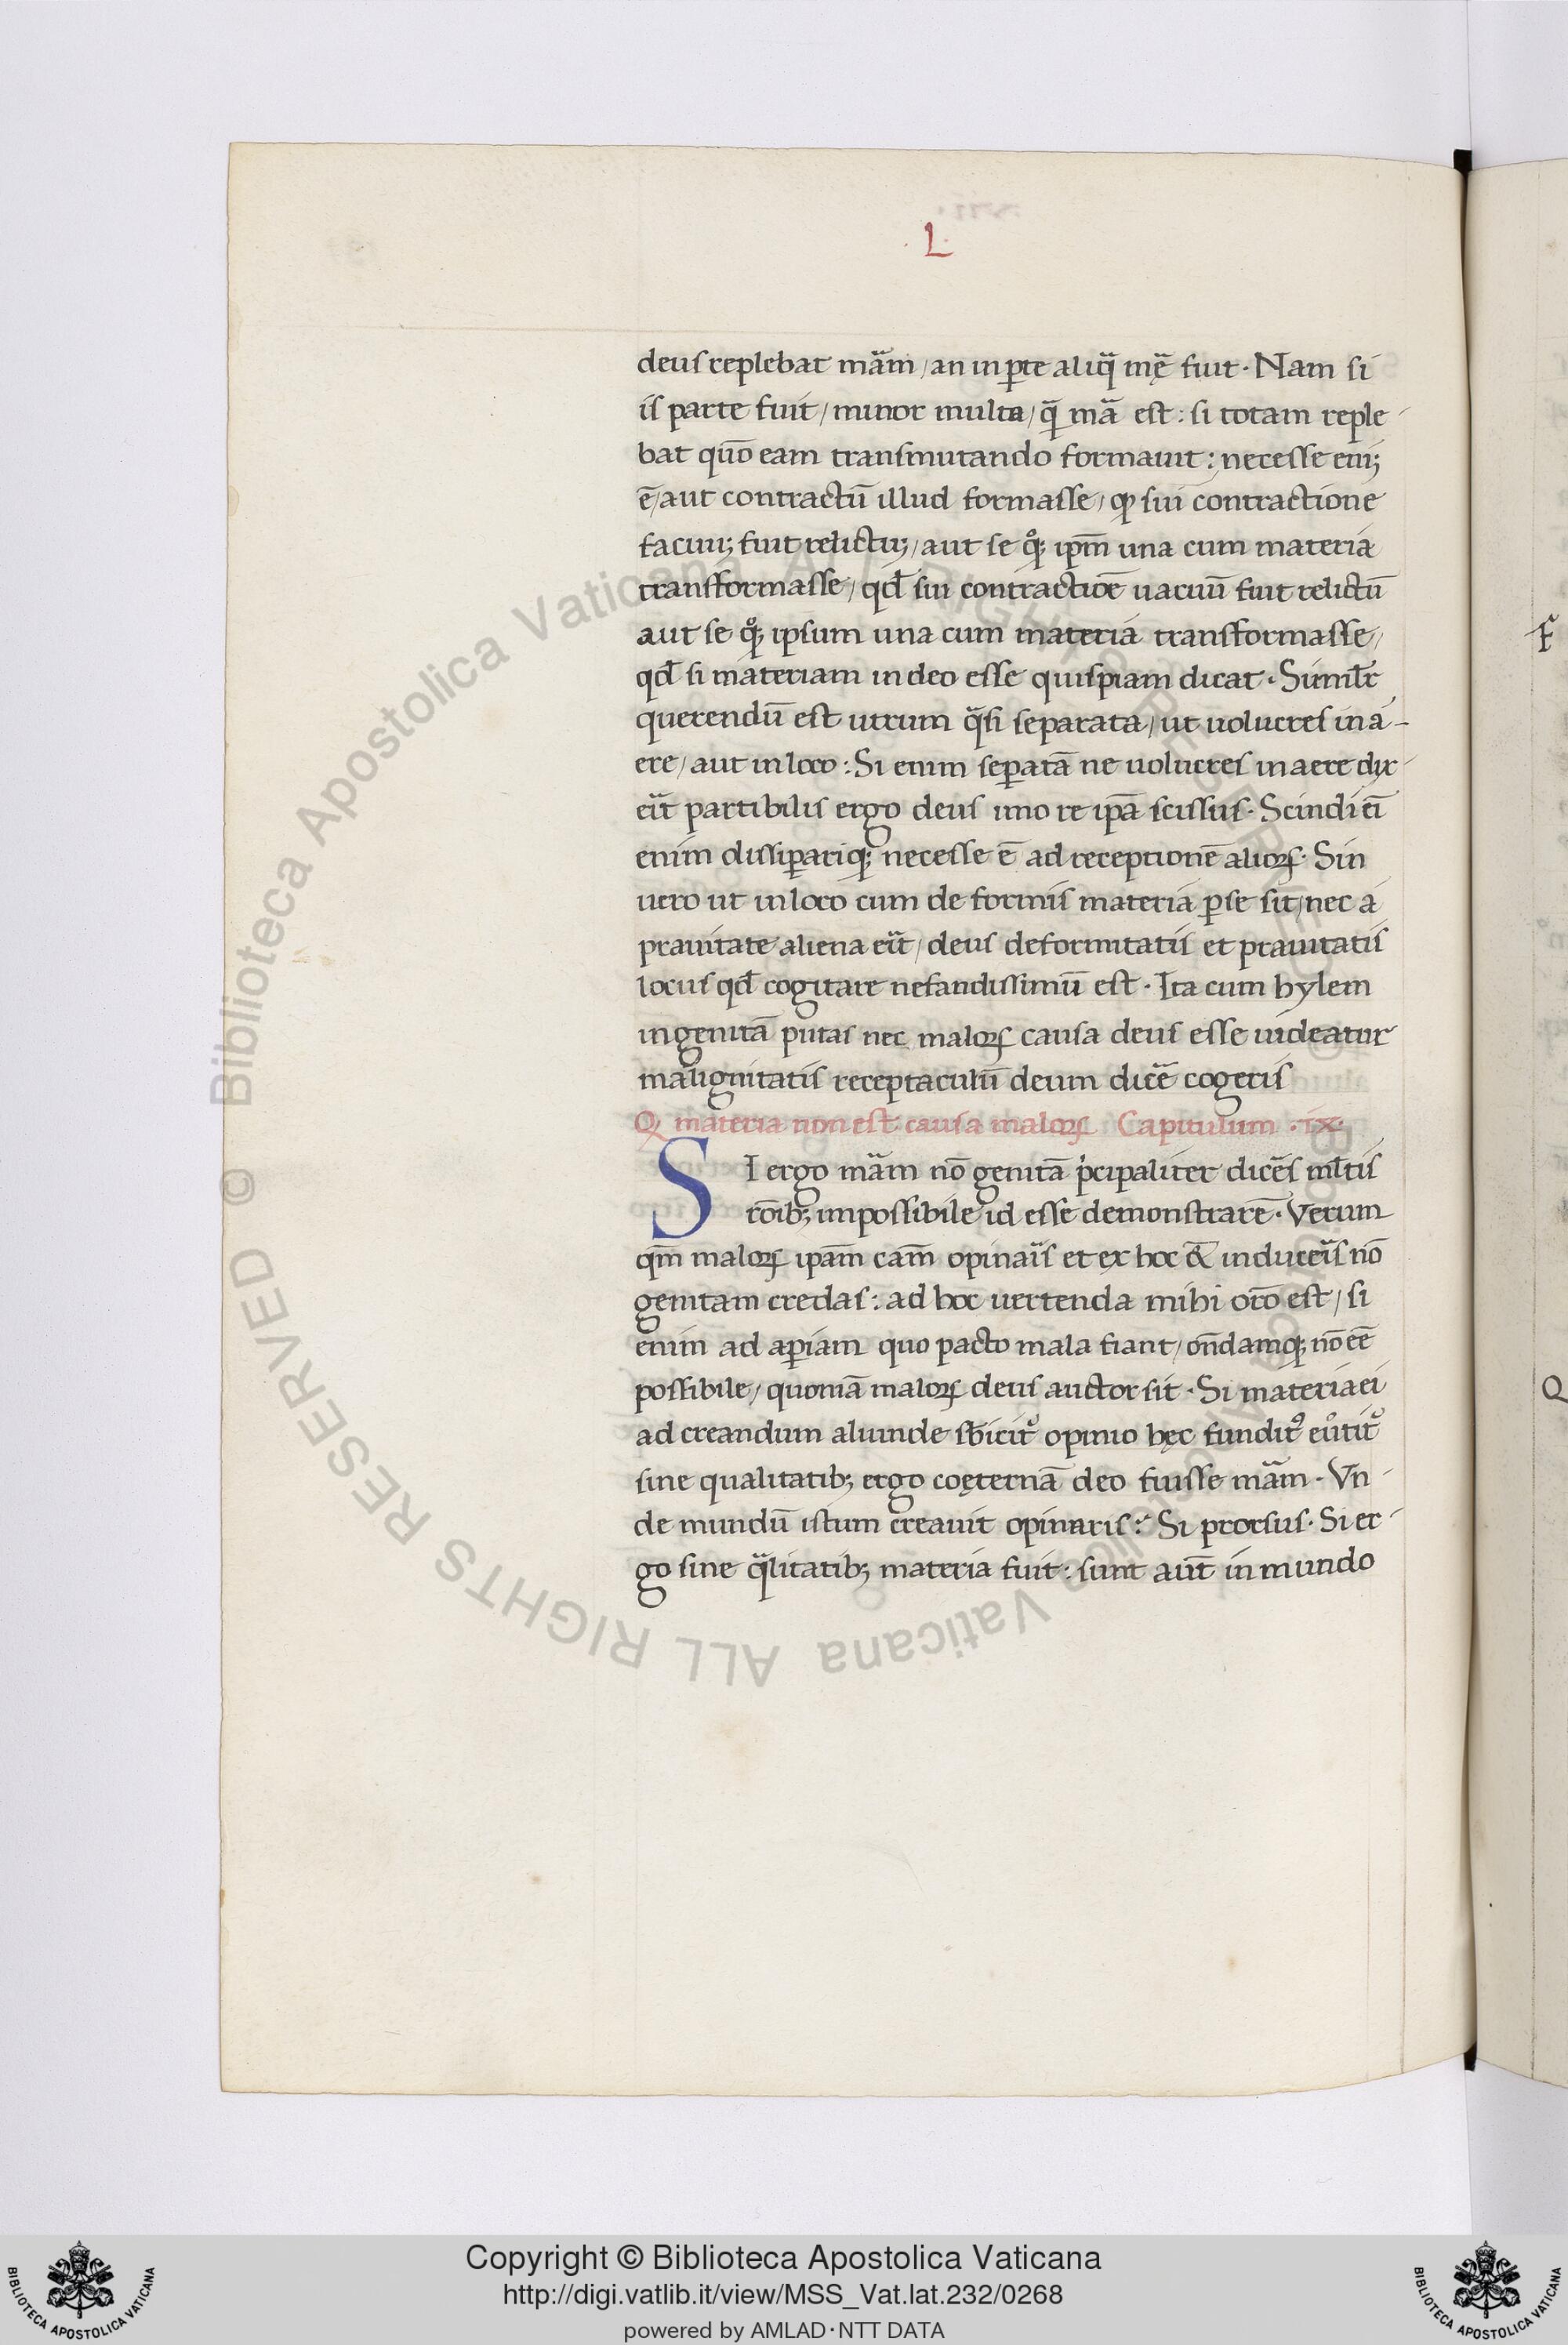 ·L·
deus replebat mãm / an in ꝑte aliq̃ mę̃ fuit · Nam si
is parte fuit / minor multa / q̃ mã est : si totam reple
bat quõ eam transmutando formauit : necesse eni;
ẽ / aut contractũ illud formasse / ꝙ sui contractione
facuu; fuit relictu; / aut se qͦꝫ ipm̃ una cum materia
transformasse / qđ sui contractiõe uacuũ fuit relictũ
aut se qͦꝫ ipsum una cum materia transformasse /
qđ si materiam in deo esse quispiam dicat · Similr̃
querendũ est utrum q̃si separata / ut uolucres in a-
ere / aut in loco : Si enim seꝑatã ne uolucres in aere dix
eũt partibilis ergo deus imo re ipã scissus · Scindi ei̅
enim dissiꝑariqꝫ necesse ẽ ad receptionẽ alioꝝ · Sin
uero ut in loco cum de formis materia ꝑ se sit / nec a
prauitate aliena eũt / deus deformitatis et prauitatis
locus qđ cogitare nefandissimũ est · Ita cum hylem
ingenitã putas nec maloꝝ causa deus esse uideatur
malignitatis receptaculũ deum dicẽ cogeris
Q materia non est causa maloꝝ Capitulum · ix ·
SI ergo mãm nõ genitã pͥcipaliter dicẽs ml̃tis
rõibꝫ impossibile id esse demonstrarẽ · Verum
qm̃ maloꝝ ipãm cãm opinaĩs et ex hoc &̃ induceĩs nõ
genitam credas : ad hoc uertenda mihi orõ est / si
enim ad aꝑiam quo pacto mala fiant / on̄damqꝫ nõ eẽ
possibile / quoniã maloꝝ deus auctor sit · Si materia ei
ad creandum aliunde sb̃icit᷑ opinio hęc fundit᷒ eu̓tit᷑
sine qualitatibꝫ ergo coęternã deo fuisse mãm · Vn
de mundũ istum creauit opinaris : Si prorsus · Si er
go sine q̃litatibꝫ materia fuit : sunt aũt in mundo
Copyright © Biblioteca Apostolica Vaticana
http://digi.vatlib.it/view/MSS_Vat.lat.232/0268
powered by AMLAD·NTT DATA
BIBLIOTECA APOSTOLICA VATICANA
BIBLIOTECA APOSTOLICA VATICANA
© Biblioteca Apostolica Vaticana ALL RIGHTS RESERVED
© Biblioteca Apostolica Vaticana ALL RIGHTS RESERVED